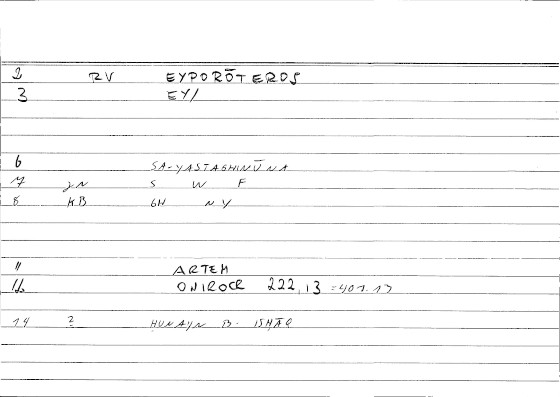 2 RV EYPORŌTEROS
3 EY/
6 SA-YASTAGHINŪNA
7 JN S W F
8 KB GH NY
11 ARTEM
12 ONIROCR 222,13 =401.13
14 2 HUNAYN B. ISHĀQ